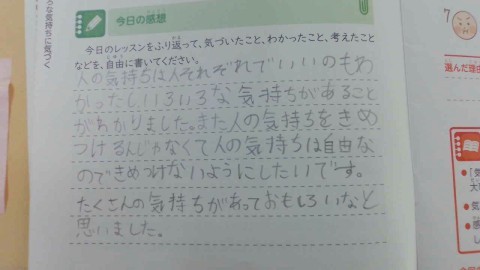 ろな気持ちに気づく
今日の感想
今日のレッスンをふり返って、気づいたこと、わかったこと、考えたこと
などを、自由に書いてください。
人の気持ちは人それぞれでいいのもわ
かったしいろいろな気持ちがあること
がわかりました。また人の気持ちをきめ
つけるんじゃなくて人の気持ちは自由な
のできめつけないようにしたいです。
たくさんの気持ちがあっておもしろいなと
思いました。
7
選んだ理由